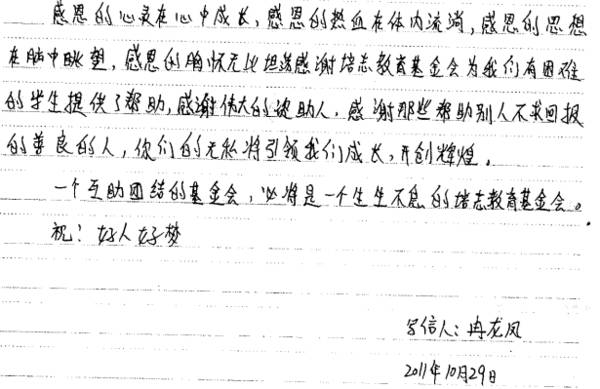 感恩的心灵在心中成长，感恩的热血在体内流淌，感恩的思想
在脑中眺望，感恩的胸怀无比坦荡感谢培志教育基金会为我们有困难
的学生提供了帮助，感谢伟大的资助人，感谢那些帮助别人不求回报
的善良的人，你们的无私将引领我们成长，开创辉煌。
一个互助团结的基金会，必将是一个生生不息的培志教育基金会。
祝！好人好梦
写信人：冉龙凤
2011年10月29日